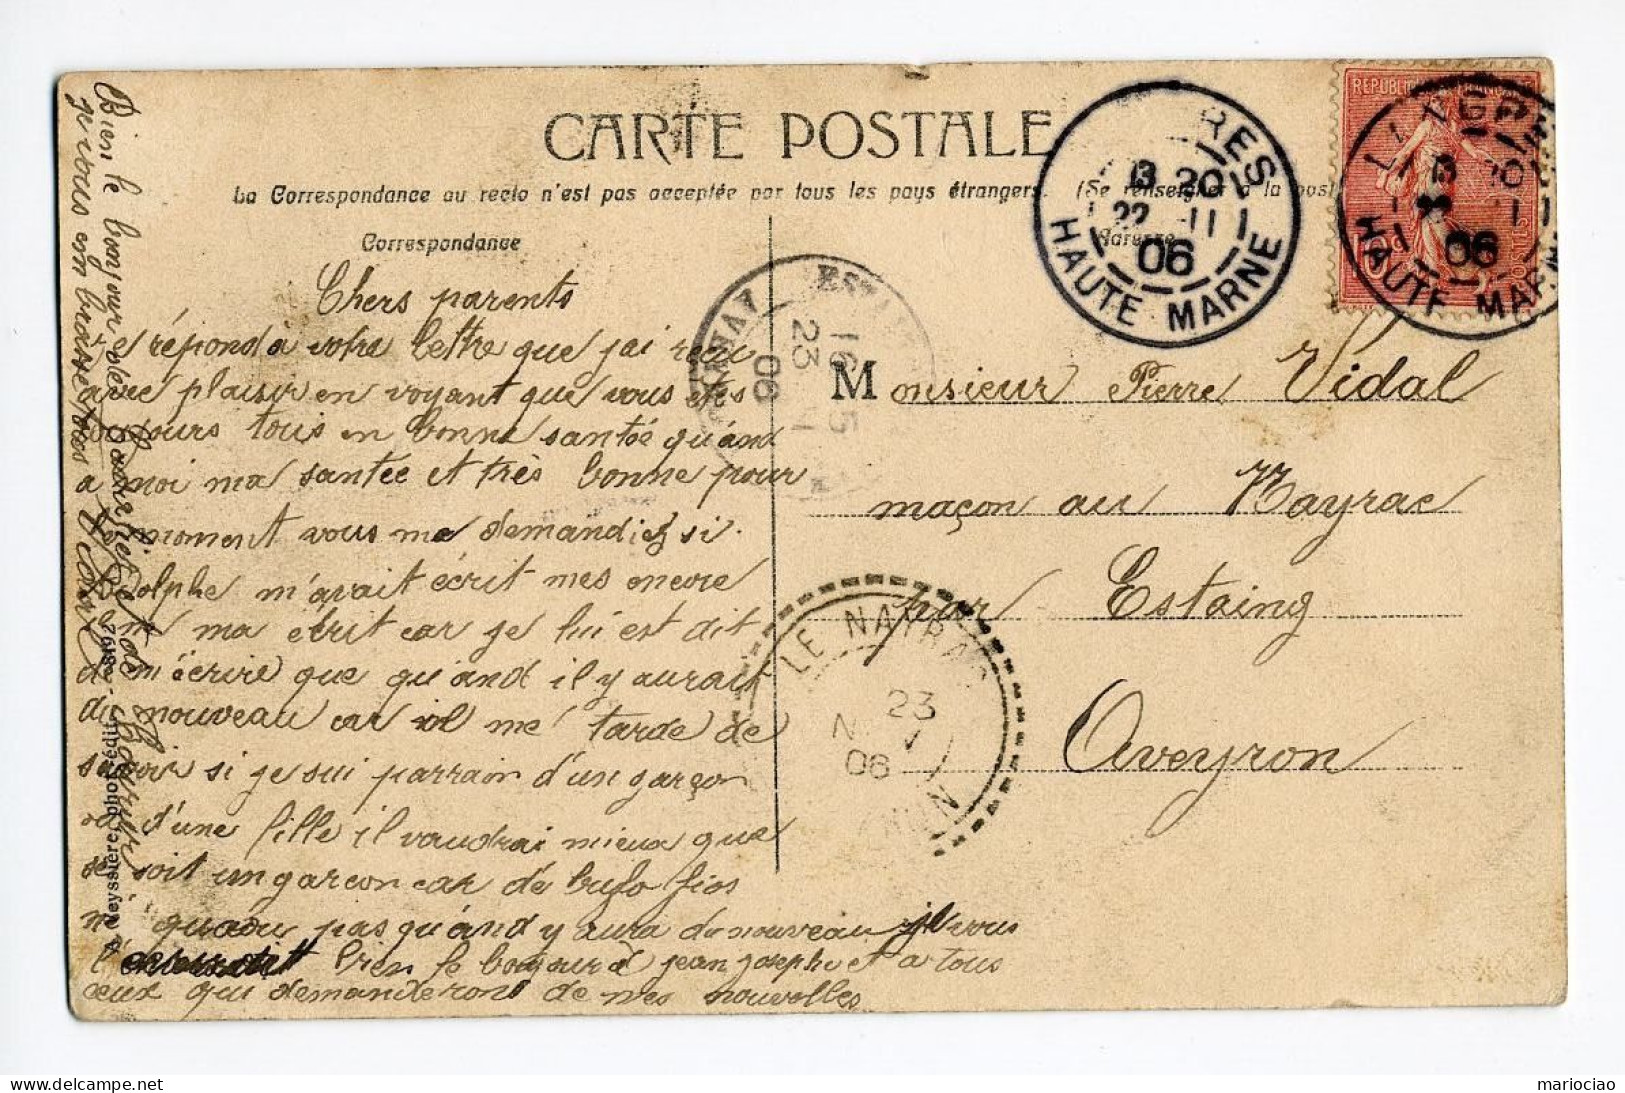 CARTE POSTALE
La Correspondance au recto n'est pas acceptée par tous les pays étrangers. (Se renseigner à la post
Correspondance
Adresse
RES
13 20
22 11
06
HAUTE MARNE
REPUBLIQUE FRANÇAISE
06
HAUTE MARN
ESTA
AVEYRON
16 5
23 11
06
LE NAYRAC
23
NOV
06
Chers parents
Je répond à votre lettre que j'ai reçu
avec plaisir en voyant que vous etes
toujours tous en bonne santée quand
a moi ma santée et très bonne pour
le moment vous me demandiez si
adolphe m'avait écrit mes encore
ma écrit car je lui est dit
de m'écrire que quand il y aurait
du nouveau car il me tarde de
savoir si je sui parrain d'un garçon
ou d'une fille il vaudrai mieux que
se soit un garçon car de
pas quand y aura du nouveau je vous
l' bien le bonjour a jean josephe et a tous
ceux qui demanderons de mes nouvelles
Bien le bonjour des
je vous embrasse tous Vidal
Veyssière, phot. édit. - 8192
Monsieur Pierre Vidal
maçon au Nayrac
par Estaing
Aveyron
mariociao